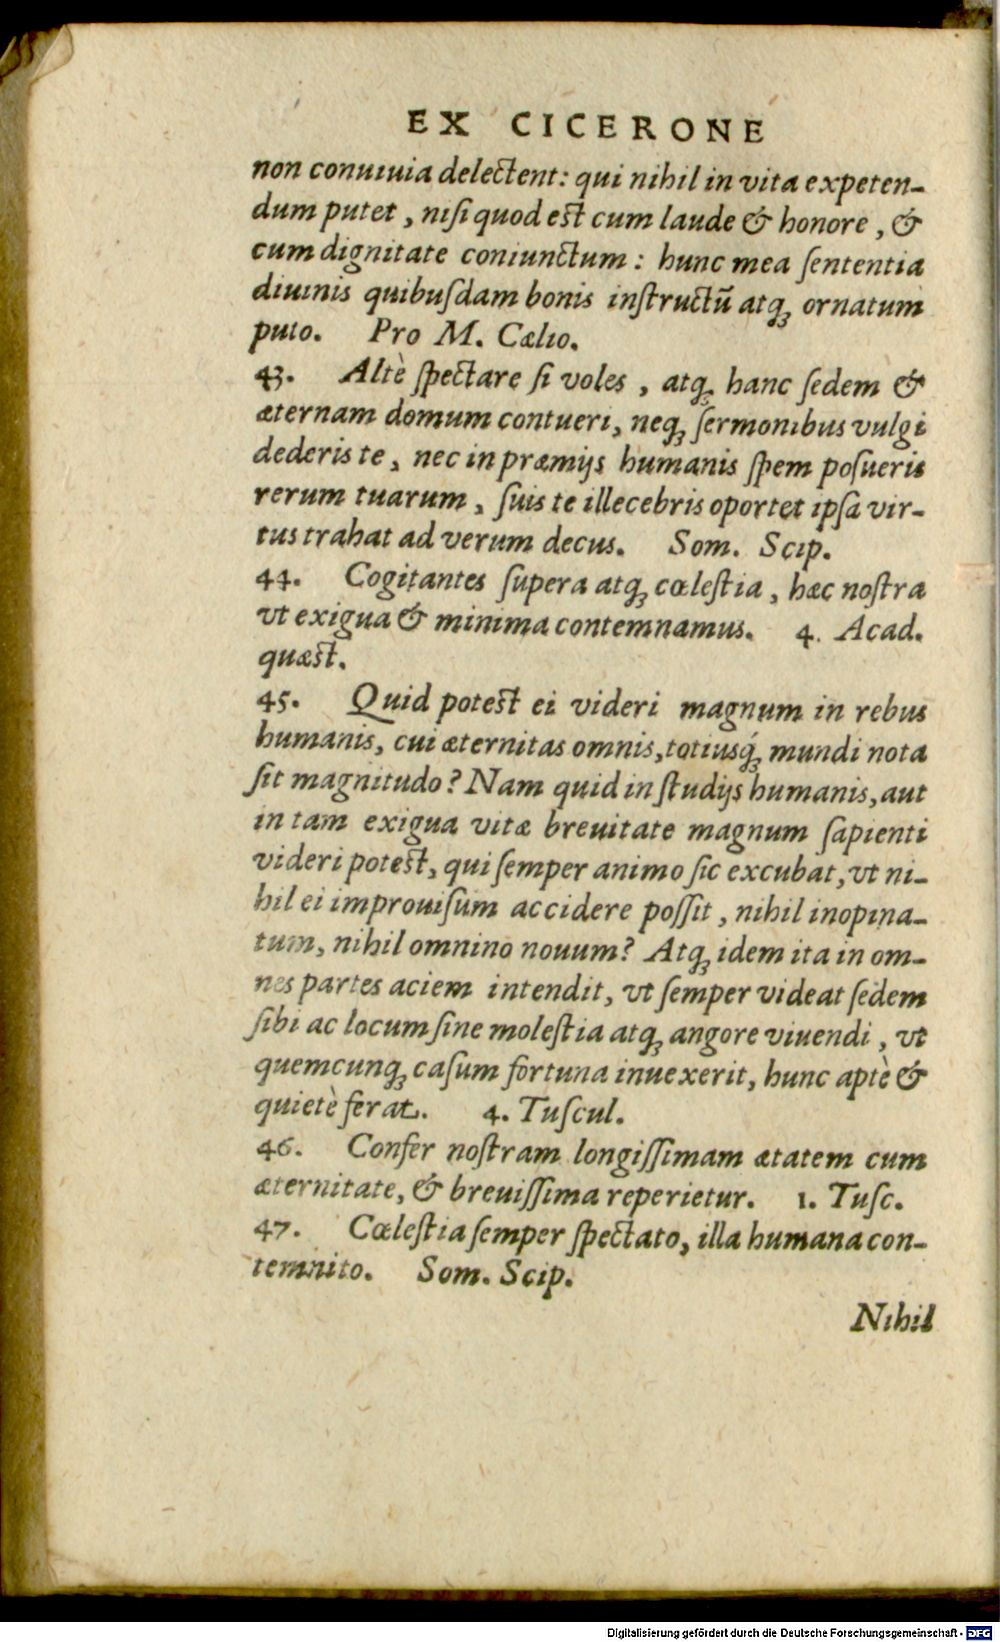 EX CICERONE
non conuiuia delectent: qui nihil in vita expeten-
dum putet, nisi quod est cum laude & honore, &
cum dignitate coniunctum: hunc mea ſententia
diuinis quibuſdam bonis inſtructū atq; ornatum
puto. Pro M. Cælio.
43. Altè ſpectare ſi voles, atq; hanc ſedem &
æternam domum contueri, neq; ſermonibus vulgi
dederis te, nec in præmijs humanis ſpem poſueris
rerum tuarum, ſuis te illecebris oportet ipſa vir-
tus trahat ad verum decus. Som. Scip.
44. Cogitantes ſupera atq; cœleſtia, hæc noſtra
vt exigua & minima contemnamus. 4. Acad.
quæst.
45. Quid potest ei videri magnum in rebus
humanis, cui æternitas omnis, totiusq́; mundi nota
ſit magnitudo? Nam quid in ſtudijs humanis, aut
in tam exigua vitæ breuitate magnum ſapienti
videri potest, qui ſemper animo ſic excubat, vt ni-
hil ei improuiſum accidere poſſit, nihil inopina-
tum, nihil omnino nouum? Atq; idem ita in om-
nes partes aciem intendit, vt ſemper videat ſedem
ſibi ac locum ſine moleſtia atq; angore viuendi, vt
quemcunq; caſum fortuna inuexerit, hunc aptè &
quietè ferat. 4. Tuſcul.
46. Confer noſtram longiſſimam ætatem cum
æternitate, & breuiſſima reperietur. 1. Tuſc.
47. Cœleſtia ſemper ſpectato, illa humana con-
temnito. Som. Scip.
Nihil
Digitalisierung gefördert durch die Deutsche Forschungsgemeinschaft - DFG